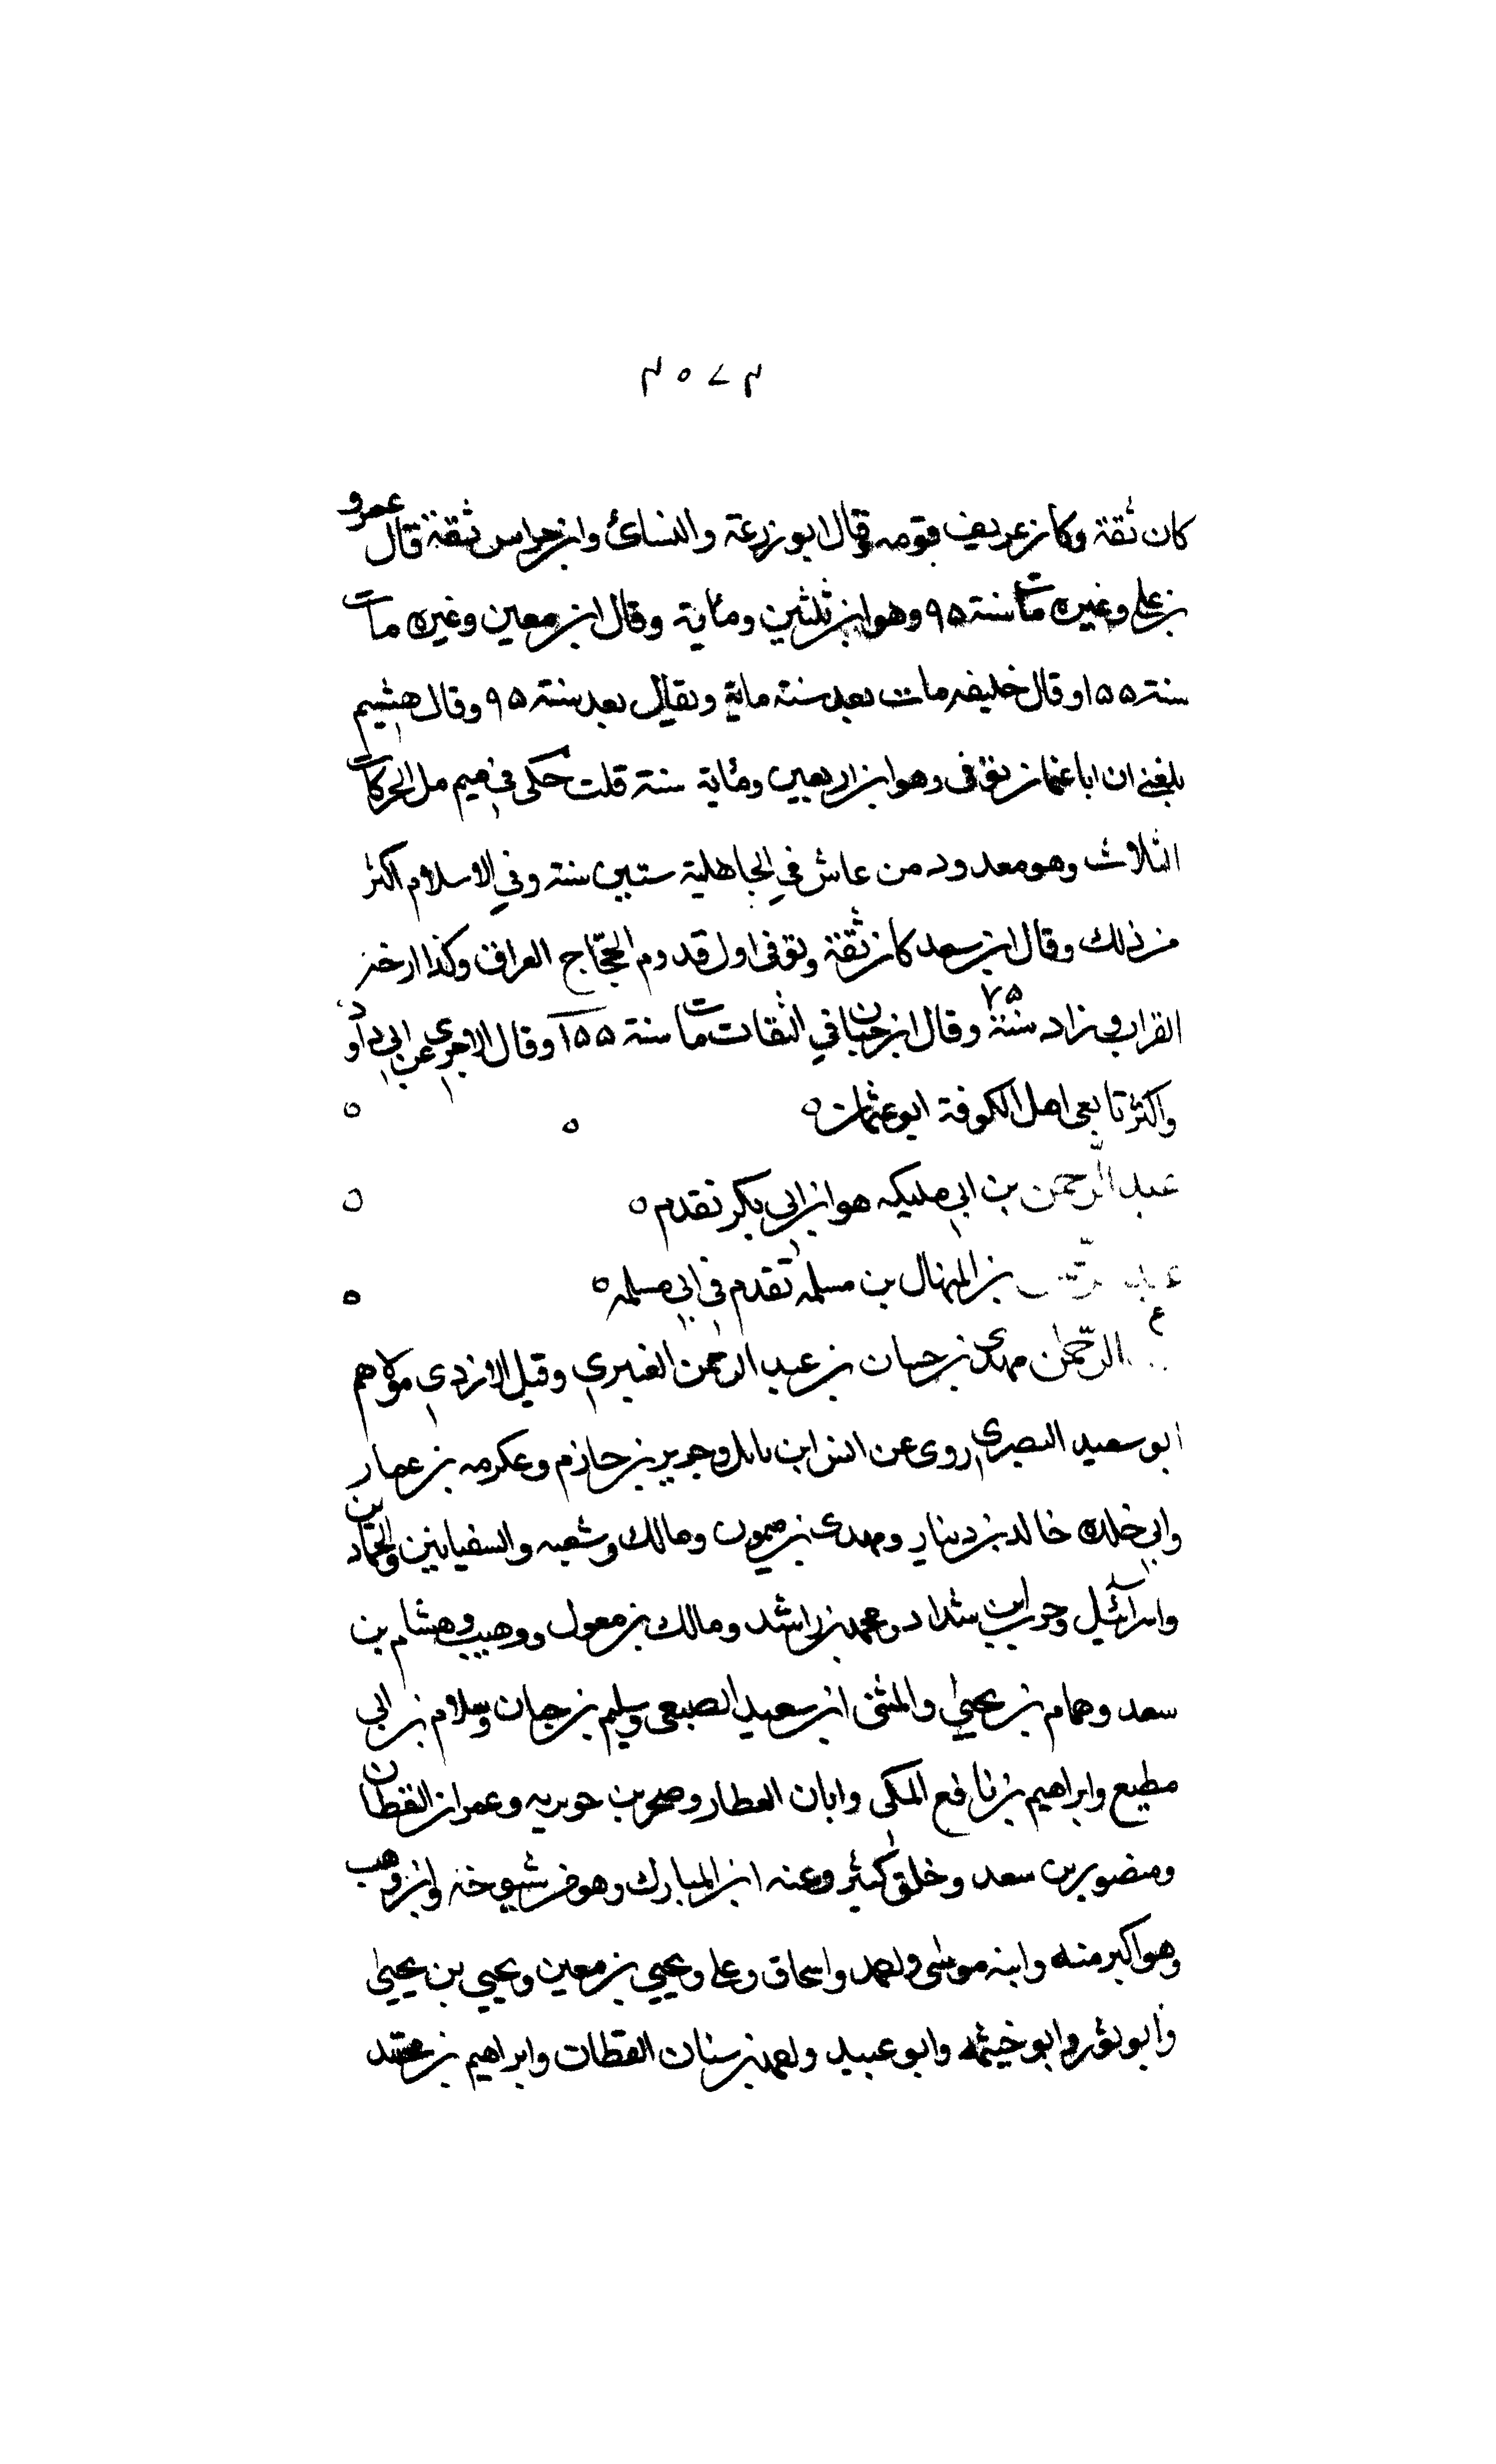 ٣٠٧٣
كان ثقة وكان عريف قومه وقال ابو زرعة والنسائ وابن خراس ثقة قال عمرو
بن علي وغيره مات سنة ٩٥ وهو ابن ثلثين ومئاية وقال ابن معين وغيره مات
سنة ١٥٥ وقال خليفه مات بعد سنة ماية ويقال بعد سنة ٩٥ وقال هشيم
بلغني ان ابا عثمان توفى وهو ابن اربعين ومئاية سنة قلت حكى في ميم مل الحركات
الثلاث وهو معدود من عاش في الجاهلية ستين سنة وفي الاسلام اكثر
من ذلك وقال ابن سعد كان ثقة وتوفى اول قدوم الحجّاج العراق وكذا ارخه
القراب وزاد سنة ٧٥ وقال ابن حبان في الثقات مات سنة ١٥٥ وقال الاجري عن ابي داود
واكثر تابعى اهل الكوفة ابو عثمان ٥
عبد الرّحمن بن ابي مليكه هو ابن ابي بكر تقدم ٥
بن المنهال بن مسلمه تقدم في ابي مسلمه ٥
ع الرّحمٰن مهدي بن حسان بن عبد الرحمٰن العنبري وقيل الازدي مولاهم
ابو سعيد البصري روى عن ايمن ابن نابل وجرير بن حازم وعكرمه بن عمار
وابي خلده خالد بن دينار ومهدى بن ميمون ومالك وشعبه والسفيانين والحمادين
واسرآئيل وحرب ابن شداد ومحمد بن راشد ومالك بن مغول ووهيب وهشام بن
سعد وهمام بن يحيىٰ والمثنى ابن سعيد الضبعى وسليم بن حيان وسلام بن ابي
مطيع وابراهيم بن نافع المكى وابان العطار وصخر بن جويريه وعمران القطان
ومنصور بن سعد وخلق كثير وعنه ابن المبارك وهو من شيوخه وابن وهب
وهو اكبر منه وابنه موسٰى واحمد واسحاق وعلى ويحيي بن معين ويحيي بن يحيىٰ
وابو ثور وابو خيثمه وابو عبيد واحمد بن سنان القطان وابراهيم بن محمد